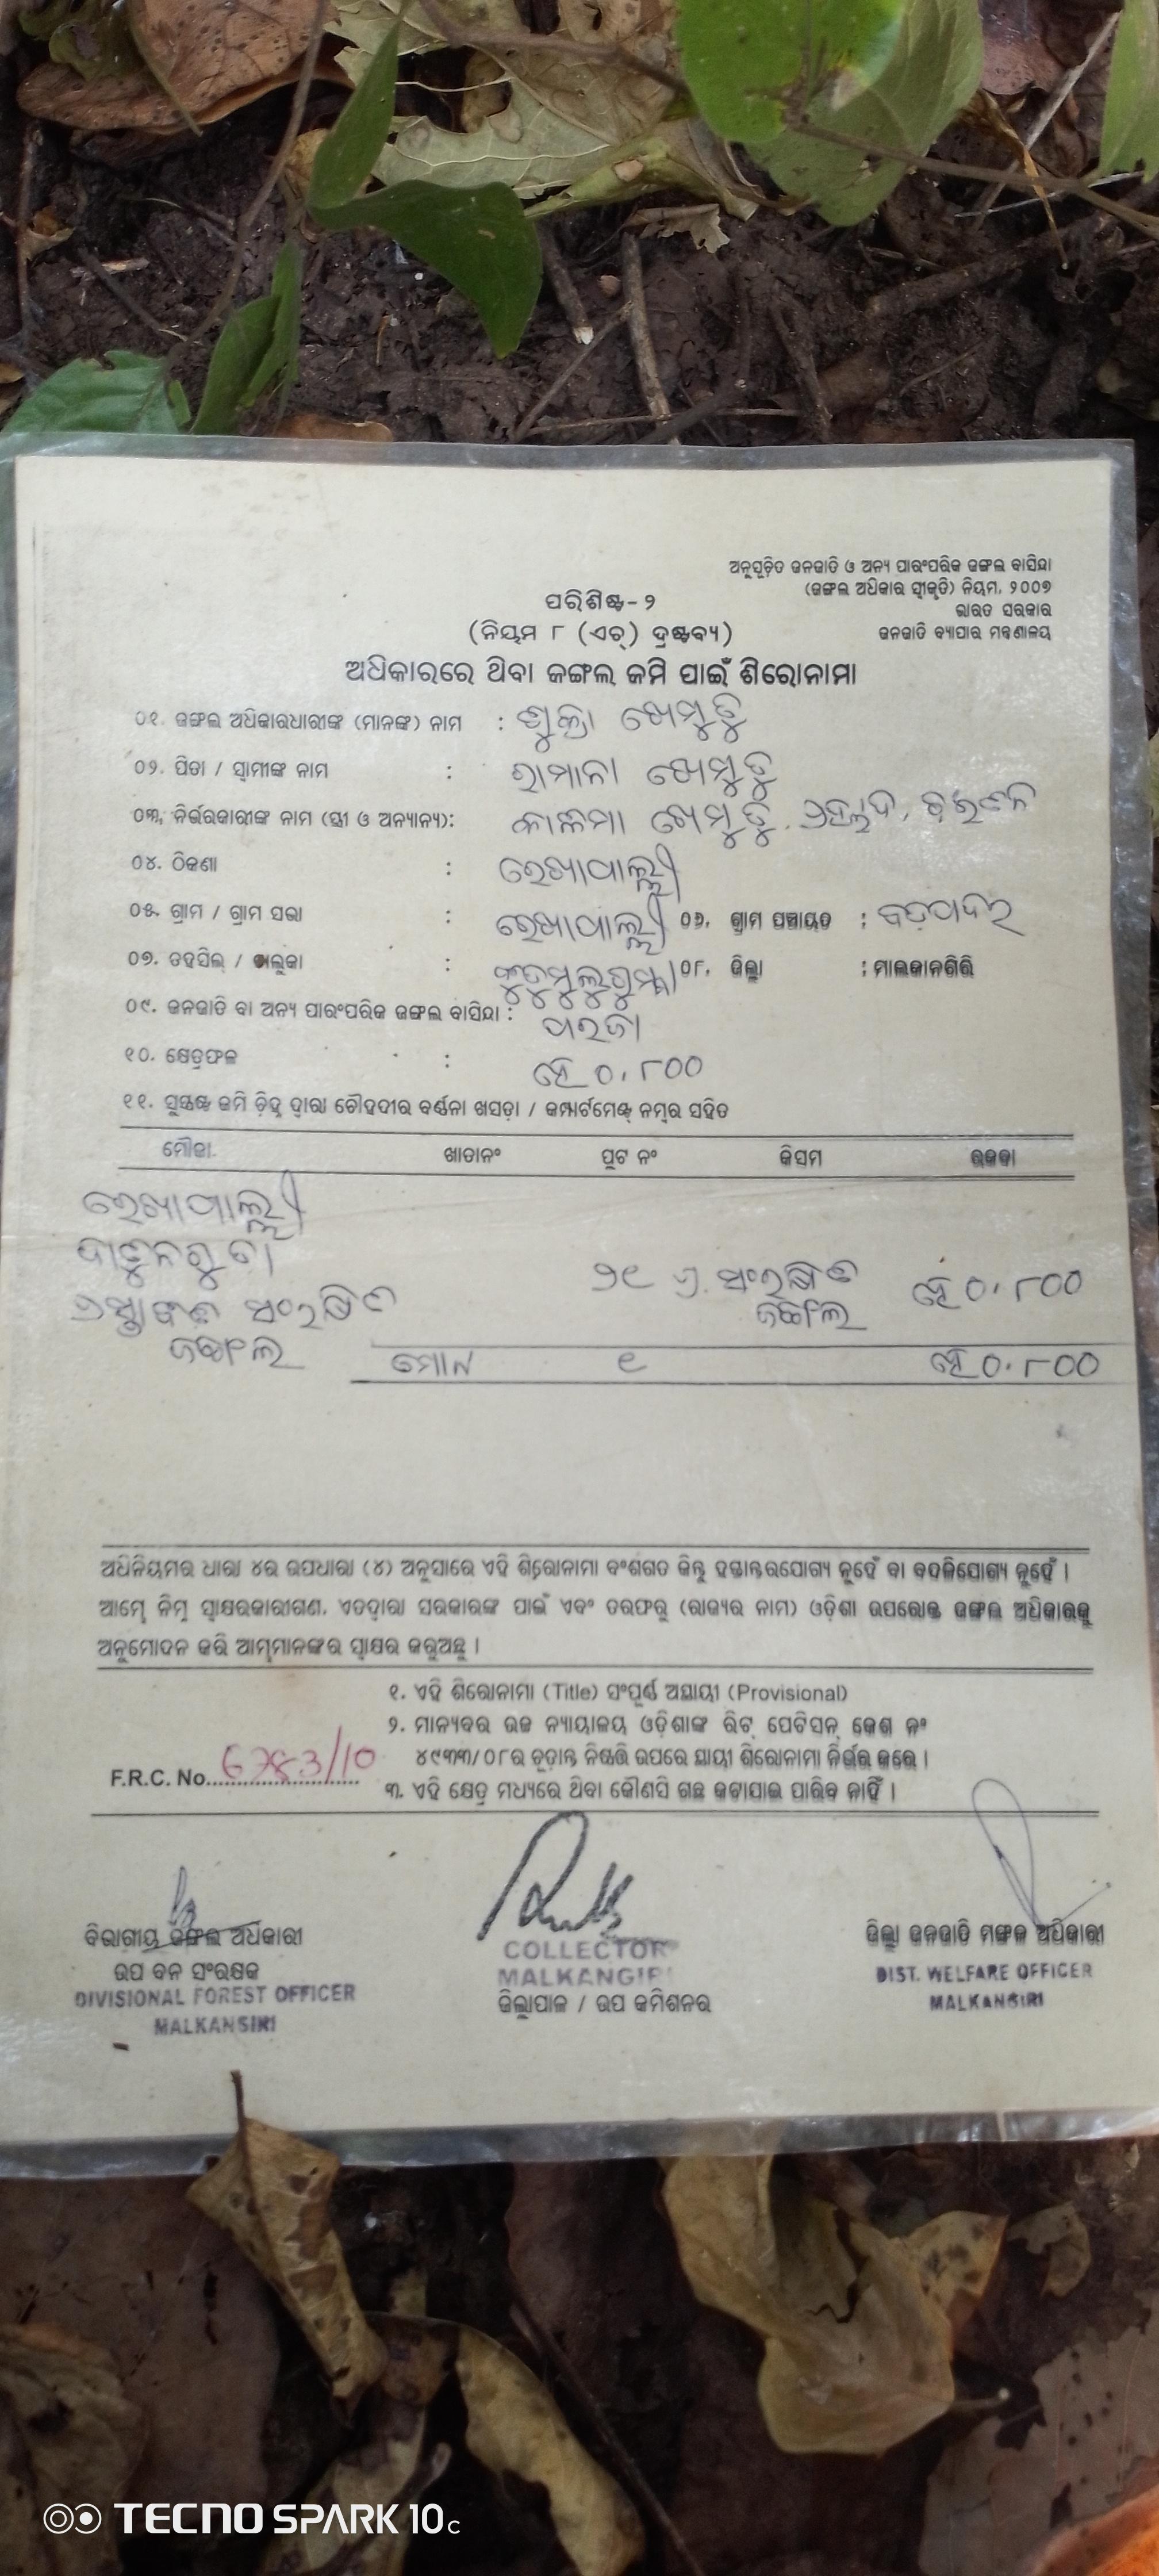 ଅନୁସୂଚିତ ଜନଜାତି ଓ ଅନ୍ୟ ପାରଂପରିକ ଜଙ୍ଗଲ ବାସିନ୍ଦା
(ଜଙ୍ଗଲ ଅଧିକାର ସ୍ୱୀକୃତି) ନିୟମ, ୨୦୦୭
ଭାରତ ସରକାର
ଜନଜାତି ବ୍ୟାପାର ମନ୍ତ୍ରଣାଳୟ
ପରିଶିଷ୍ଟ-୨
(ନିୟମ ୮ (ଏଚ୍) ଦ୍ରଷ୍ଟବ୍ୟ)
ଅଧିକାରରେ ଥିବା ଜଙ୍ଗଲ ଜମି ପାଇଁ ଶିରୋନାମା
୦୧. ଜଙ୍ଗଲ ଅଧିକାରଧାରୀଙ୍କ (ମାନଙ୍କ) ନାମ : ଶୁକ୍ରା ଖେମୁଡୁ
୦୨. ପିତା / ସ୍ୱାମୀଙ୍କ ନାମ : ରାମାନା ଖେମୁଡୁ
୦୩. ନିର୍ଭରକାରୀଙ୍କ ନାମ (ସ୍ତ୍ରୀ ଓ ଅନ୍ୟାନ୍ୟ): ଖେମୁଡୁ, ପ୍ରହ୍ଲାଦ,
୦୪. ଠିକଣା : ରେଖାପାଲ୍ଲୀ
୦୫. ଗ୍ରାମ / ଗ୍ରାମ ସଭା : ରେଖାପାଲ୍ଲୀ ୦୬. ଗ୍ରାମ ପଞ୍ଚାୟତ : ବଡ଼ପଦର
୦୭. ତହସିଲ୍ / ତାଲୁକା : କୁଡୁମୁଲୁଗୁମ୍ମା ୦୮. ଜିଲ୍ଲା : ମାଲକାନଗିରି
୦୯. ଜନଜାତି ବା ଅନ୍ୟ ପାରଂପରିକ ଜଙ୍ଗଲ ବାସିନ୍ଦା : ପରଜା
୧୦. କ୍ଷେତ୍ରଫଳ : ହେ ୦.୮୦୦
୧୧. ସୁସ୍ପଷ୍ଟ ଜମି ଚିହ୍ନ ଦ୍ୱାରା ଚୌହଦୀର ବର୍ଣ୍ଣନା ଖସଡ଼ା / କମ୍ପାର୍ଟମେଣ୍ଟ ନମ୍ବର ସହିତ
ମୌଜା ଖାତାନଂ ପ୍ଲଟ ନଂ କିସମ ରକବା
ରେଖାପାଲ୍ଲୀ
ପ୍ରସ୍ତାବିତ ସଂରକ୍ଷିତ ୨୧ ପ୍ର. ସଂରକ୍ଷିତ ହେ ୦.୮୦୦
ଜଙ୍ଗଲ ଜଙ୍ଗଲ
ମୋଟ ୧ ହେ ୦.୮୦୦
ଅଧିନିୟମର ଧାରା ୪ର ଉପଧାରା (୪) ଅନୁସାରେ ଏହି ଶିରୋନାମା ବଂଶଗତ କିନ୍ତୁ ହସ୍ତାନ୍ତରଯୋଗ୍ୟ ନୁହେଁ ବା ବଦଳିଯୋଗ୍ୟ ନୁହେଁ ।
ଆମ୍ଭେ ନିମ୍ନ ସ୍ୱାକ୍ଷରକାରୀଗଣ, ଏତଦ୍ୱାରା ସରକାରଙ୍କ ପାଇଁ ଏବଂ ତରଫରୁ (ରାଜ୍ୟର ନାମ) ଓଡ଼ିଶା ଉପରୋକ୍ତ ଜଙ୍ଗଲ ଅଧିକାରକୁ
ଅନୁମୋଦନ କରି ଆମ୍ଭମାନଙ୍କର ସ୍ୱାକ୍ଷର କରୁଅଛୁ ।
୧. ଏହି ଶିରୋନାମା (Title) ସଂପୂର୍ଣ୍ଣ ଅସ୍ଥାୟୀ (Provisional)
୨. ମାନ୍ୟବର ଉଚ୍ଚ ନ୍ୟାୟାଳୟ ଓଡ଼ିଶାଙ୍କ ରିଟ୍ ପେଟିସନ୍ କେଶ ନଂ
୪୯୩୩/୦୮ର ଚୂଡ଼ାନ୍ତ ନିଷ୍ପତ୍ତି ଉପରେ ସ୍ଥାୟୀ ଶିରୋନାମା ନିର୍ଭର କରେ ।
F.R.C. No. 6783/10
୩. ଏହି କ୍ଷେତ୍ର ମଧ୍ୟରେ ଥିବା କୌଣସି ଗଛ କଟାଯାଇ ପାରିବ ନାହିଁ ।
ବିଭାଗୀୟ ଜଙ୍ଗଲ ଅଧିକାରୀ
ଉପ ବନ ସଂରକ୍ଷକ
DIVISIONAL FOREST OFFICER
MALKANGIRI
COLLECTOR
MALKANGIRI
ଜିଲ୍ଲାପାଳ / ଉପ କମିଶନର
ଜିଲ୍ଲା ଜନଜାତି ମଙ୍ଗଳ ଅଧିକାରୀ
DIST. WELFARE OFFICER
MALKANGIRI
TECNO SPARK 10c